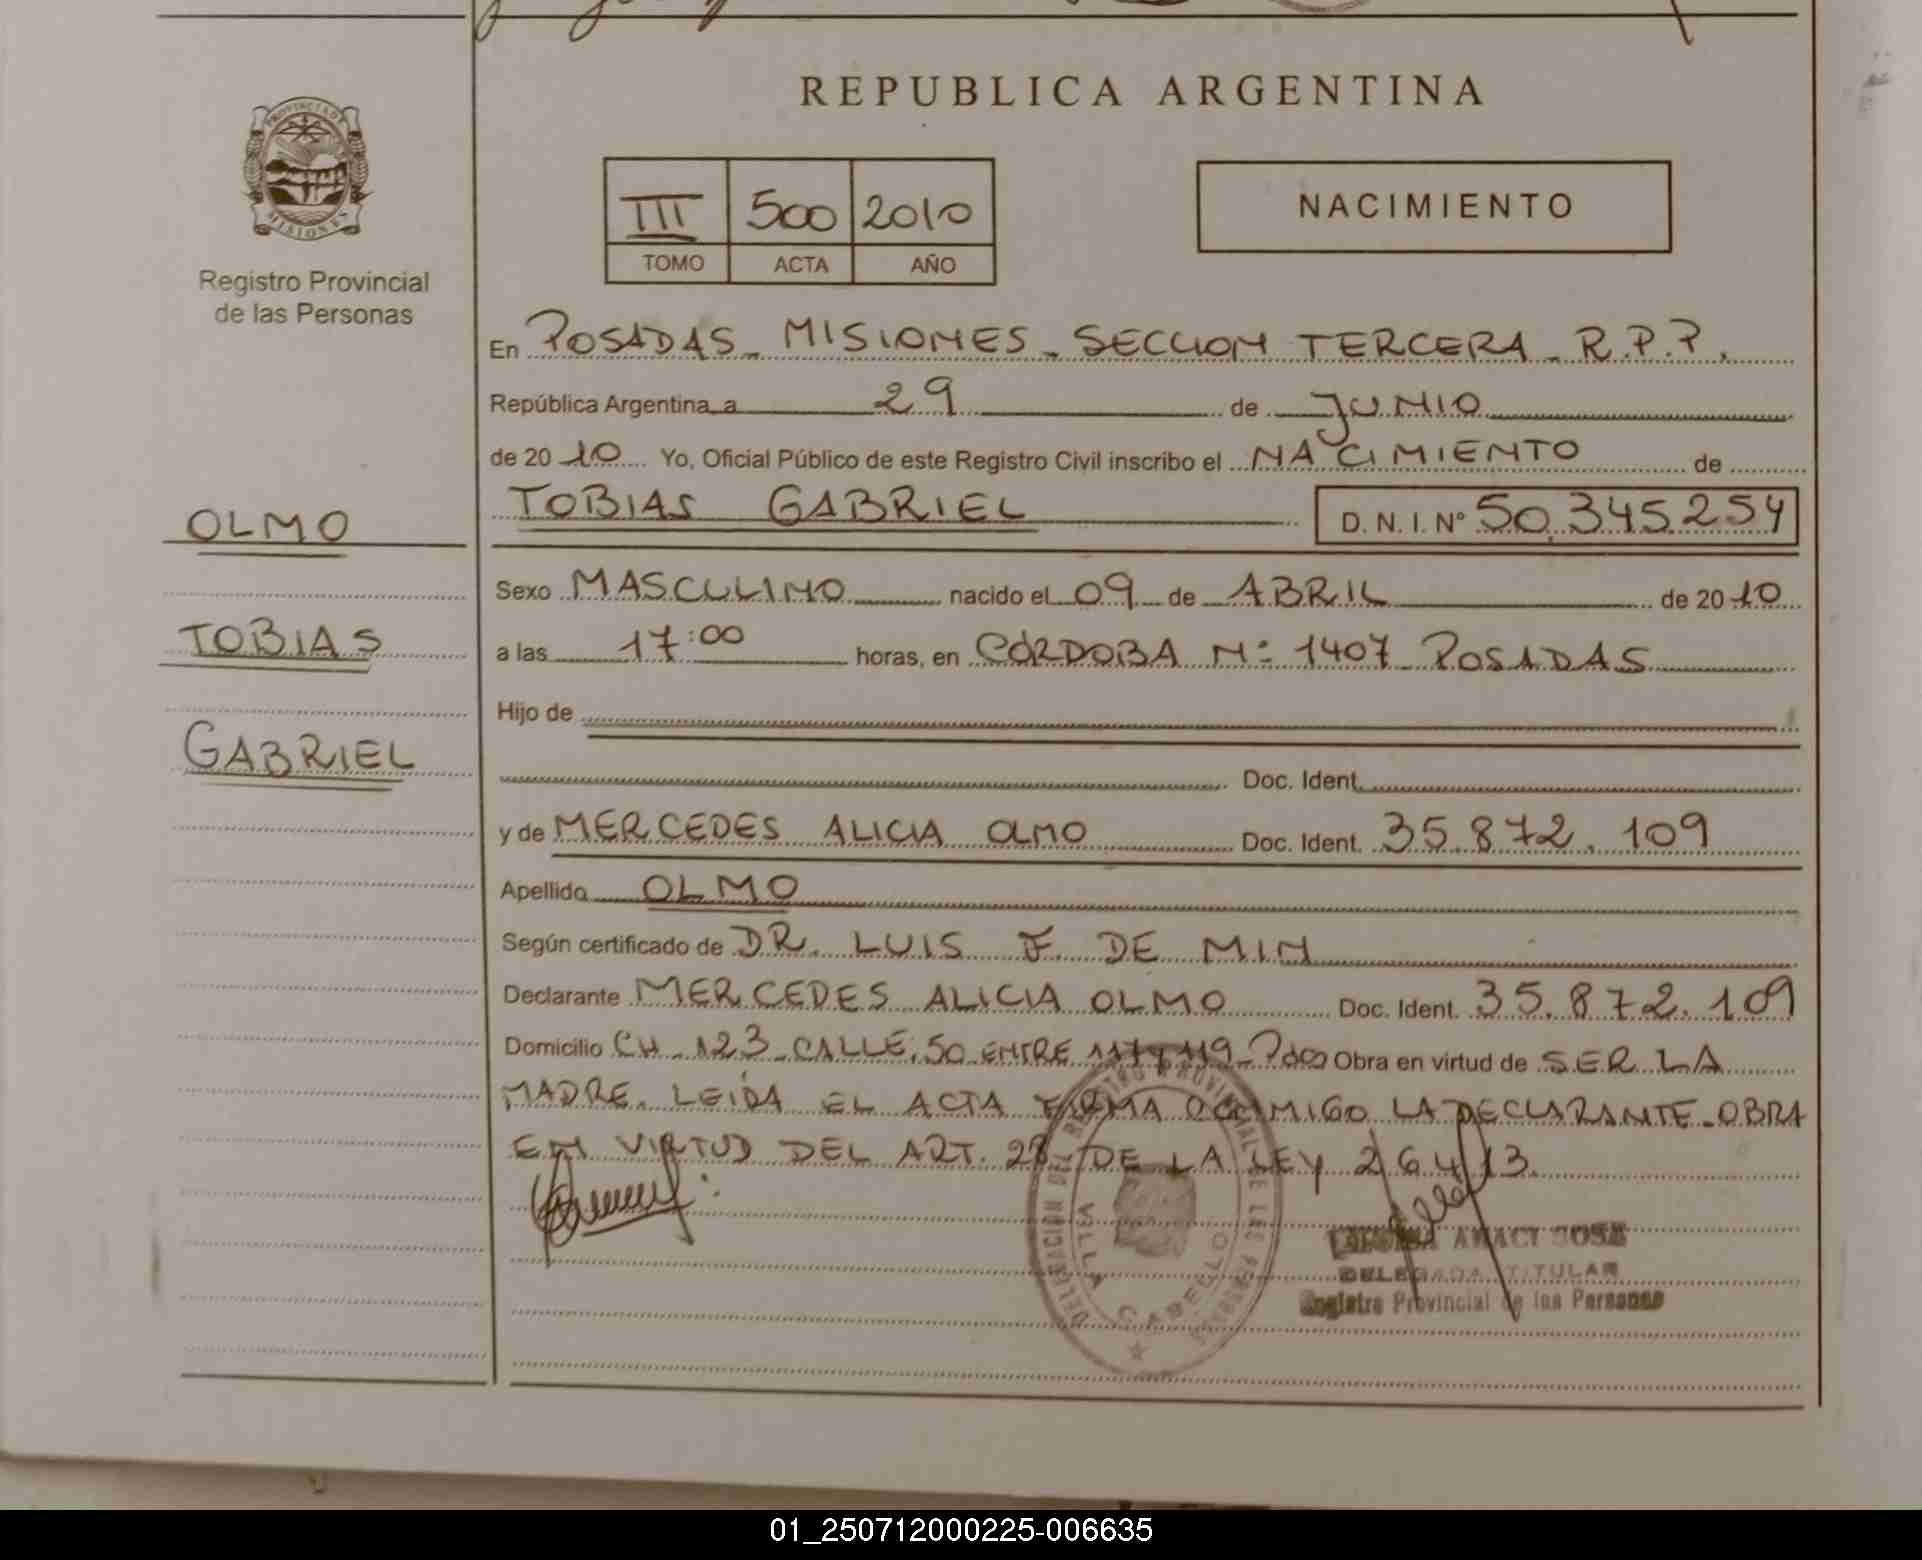 REPUBLICA ARGENTINA
PROVINCIA DE MISIONES
Registro Provincial
de las Personas
III 500 2010
TOMO ACTA AÑO
NACIMIENTO
En POSADAS - MISIONES - SECCION TERCERA - R.P.P.
República Argentina, a 29 de JUNIO
de 2010 Yo, Oficial Público de este Registro Civil inscribo el NACIMIENTO de
TOBIAS GABRIEL D.N.I. Nº 50.345.254
OLMO
TOBIAS
GABRIEL
Sexo MASCULINO nacido el 09 de ABRIL de 2010
a las 17:00 horas, en CÓRDOBA Nº 1407 POSADAS
Hijo de
Doc. Ident.
y de MERCEDES ALICIA OLMO Doc. Ident. 35.872.109
Apellido OLMO
Según certificado de DR. LUIS F. DE MIN
Declarante MERCEDES ALICIA OLMO Doc. Ident. 35.872.109
Domicilio CH. 123 - CALLE. 50 ENTRE 117 y 119 - Pdas Obra en virtud de SER LA
MADRE. LEÍDA EL ACTA FIRMA CONMIGO LA DECLARANTE - OBRA
EN VIRTUD DEL ART. 28 DE LA LEY 26413.
DELEGACION DEL REGISTRO PROVINCIAL DE LAS PERSONAS
VILLA CABELLO
JOSE
DELEGADA TITULAR
Registro Provincial de las Personas
01_250712000225-006635